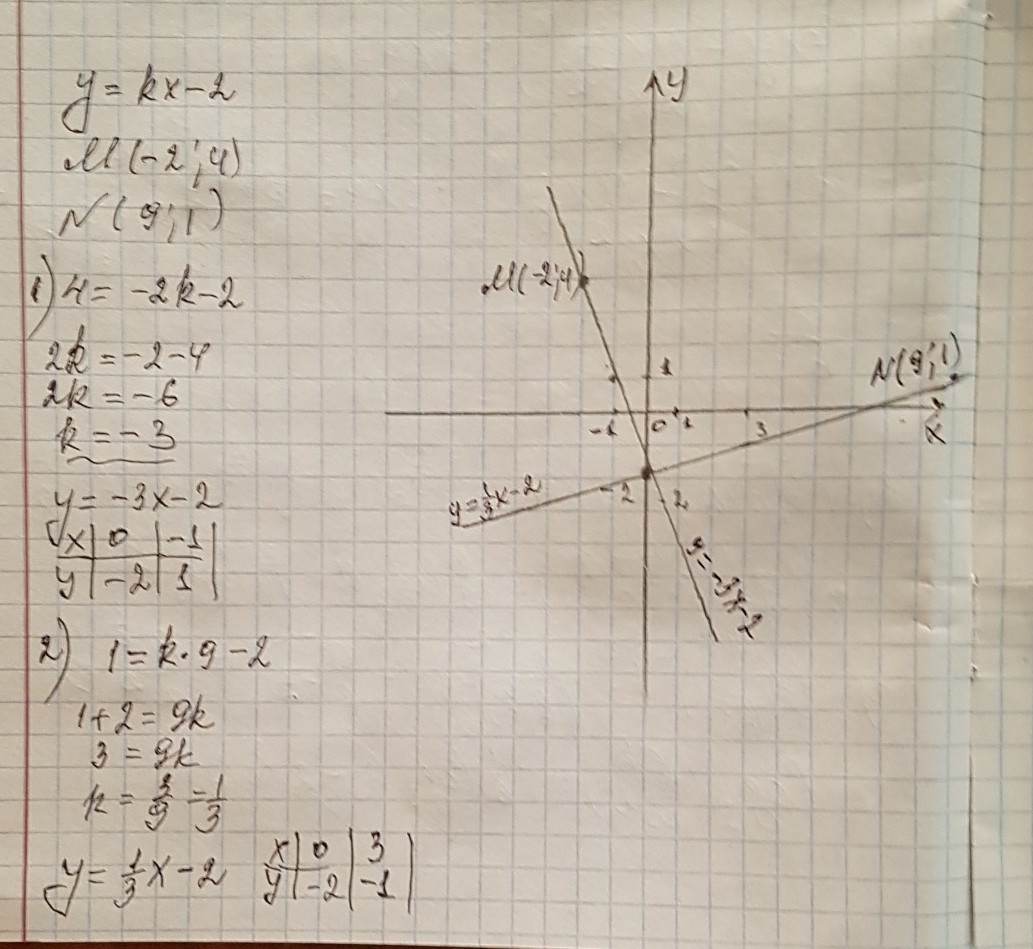 y = kx - 2
M(-2; 4)
N(9; 1)
1) 4 = -2k - 2
2k = -2 - 4
2k = -6
k = -3
y = -3x - 2
x | 0 | -1 |
y | -2 | 1 |
2) 1 = k · 9 - 2
1 + 2 = 9k
3 = 9k
k = 3/9 = 1/3
y = 1/3 x - 2
x | 0 | 3 |
y | -2 | -1 |
y
M(-2; 4)
1
N(9; 1)
-1 0 1 3 x
y = 1/3 x - 2
-2 -2
y = -3x - 2